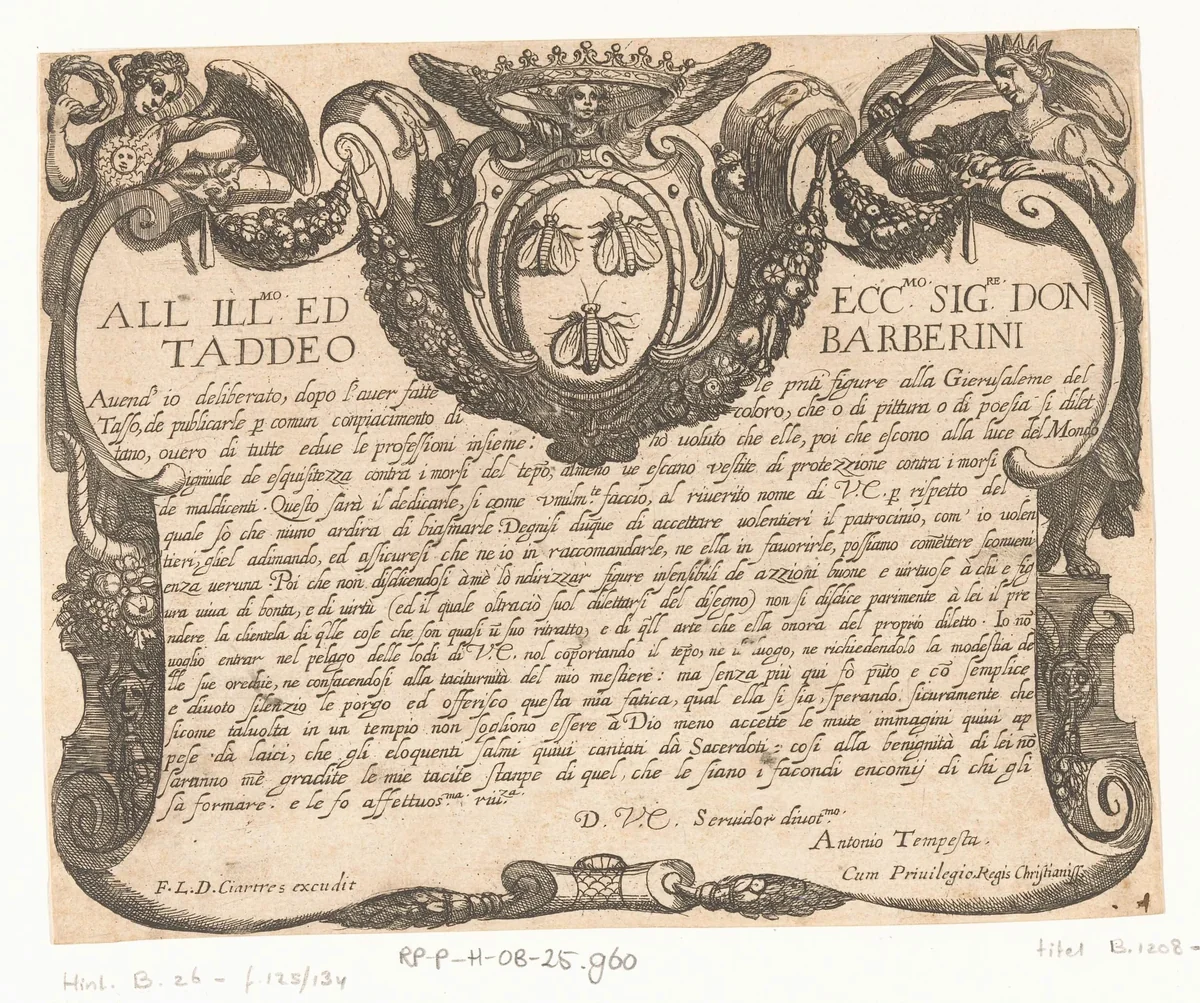 ALL ILL.MO ED ECC.MO SIG.RE DON
TADDEO BARBERINI
Auend' io deliberato, dopo l'auer fatte le pnti figure alla Gierusaleme del
Tasso, de publicarle p comun conpiacimento di coloro, che o di pittura o di poesia si dilet
tano, ouero di tutte edue le professioni insieme: hò uoluto che elle, poi che escono alla luce del Mondo
igniude de esquisitezza contra i morsi del tepo, almeno ue escano vestite di protezzione contra i morsi
de maldicenti. Questo sarà il dedicarle, si come vmilmte faccio, al riuerito nome di V.E. p rispetto del
quale sò che niuno ardira di biasmarle. Degnisi duque di accettare uolentieri il patrocinio, com' io uolen
tieri, gliel adimando, ed assicuresi che ne io in raccomandarle, ne ella in fauorirle, possiamo comettere sconueni
enza veruna. Poi che non disdicendosi à mè lò ndirizzar figure insensibili de azzioni buone e uirtuose à chi e fig
ura uiua di bonta, e di uirtù (ed il quale oltraciò suol dilettarsi del disegno) non si disdice parimente à lei il pre
ndere la clientela di qlle cose che son quasi ū suo ritratto, e di qll arte che ella onora del proprio diletto. Io nō
uoglio entrar nel pelago delle lodi di V.E. nol coportando il tepo, ne il luogo, ne richiedendolo la modestia de
lle sue orechie, ne confacendosi alla taciturnità del mio mestiere: ma senza più qui fò pūto e cō semplice
e diuoto silenzio le porgo ed offerisco questa mia fatica, qual ella si sia, sperando sicuramente che
sicome taluolta in un tempio non sogliono essere à Dio meno accette le mute immagini quiui ap
pese dà laici, che gli eloquenti salmi quiui cantati dà Sacerdoti: cosi alla benignità di lei nō
saranno mē gradite le mie tacite stanpe di quel, che le siano i facondi encomij di chi gli
sà formare. e le fo affettuos.ma riu.za
D. V.E. Seruidor diuot.mo
Antonio Tempesta.
F. L. D. Ciartres excudit
Cum Priuilegio Regis Christianiss.
RP-P-H-OB-25.960
titel B.1208-
Hinl. B. 26 - f.125/134